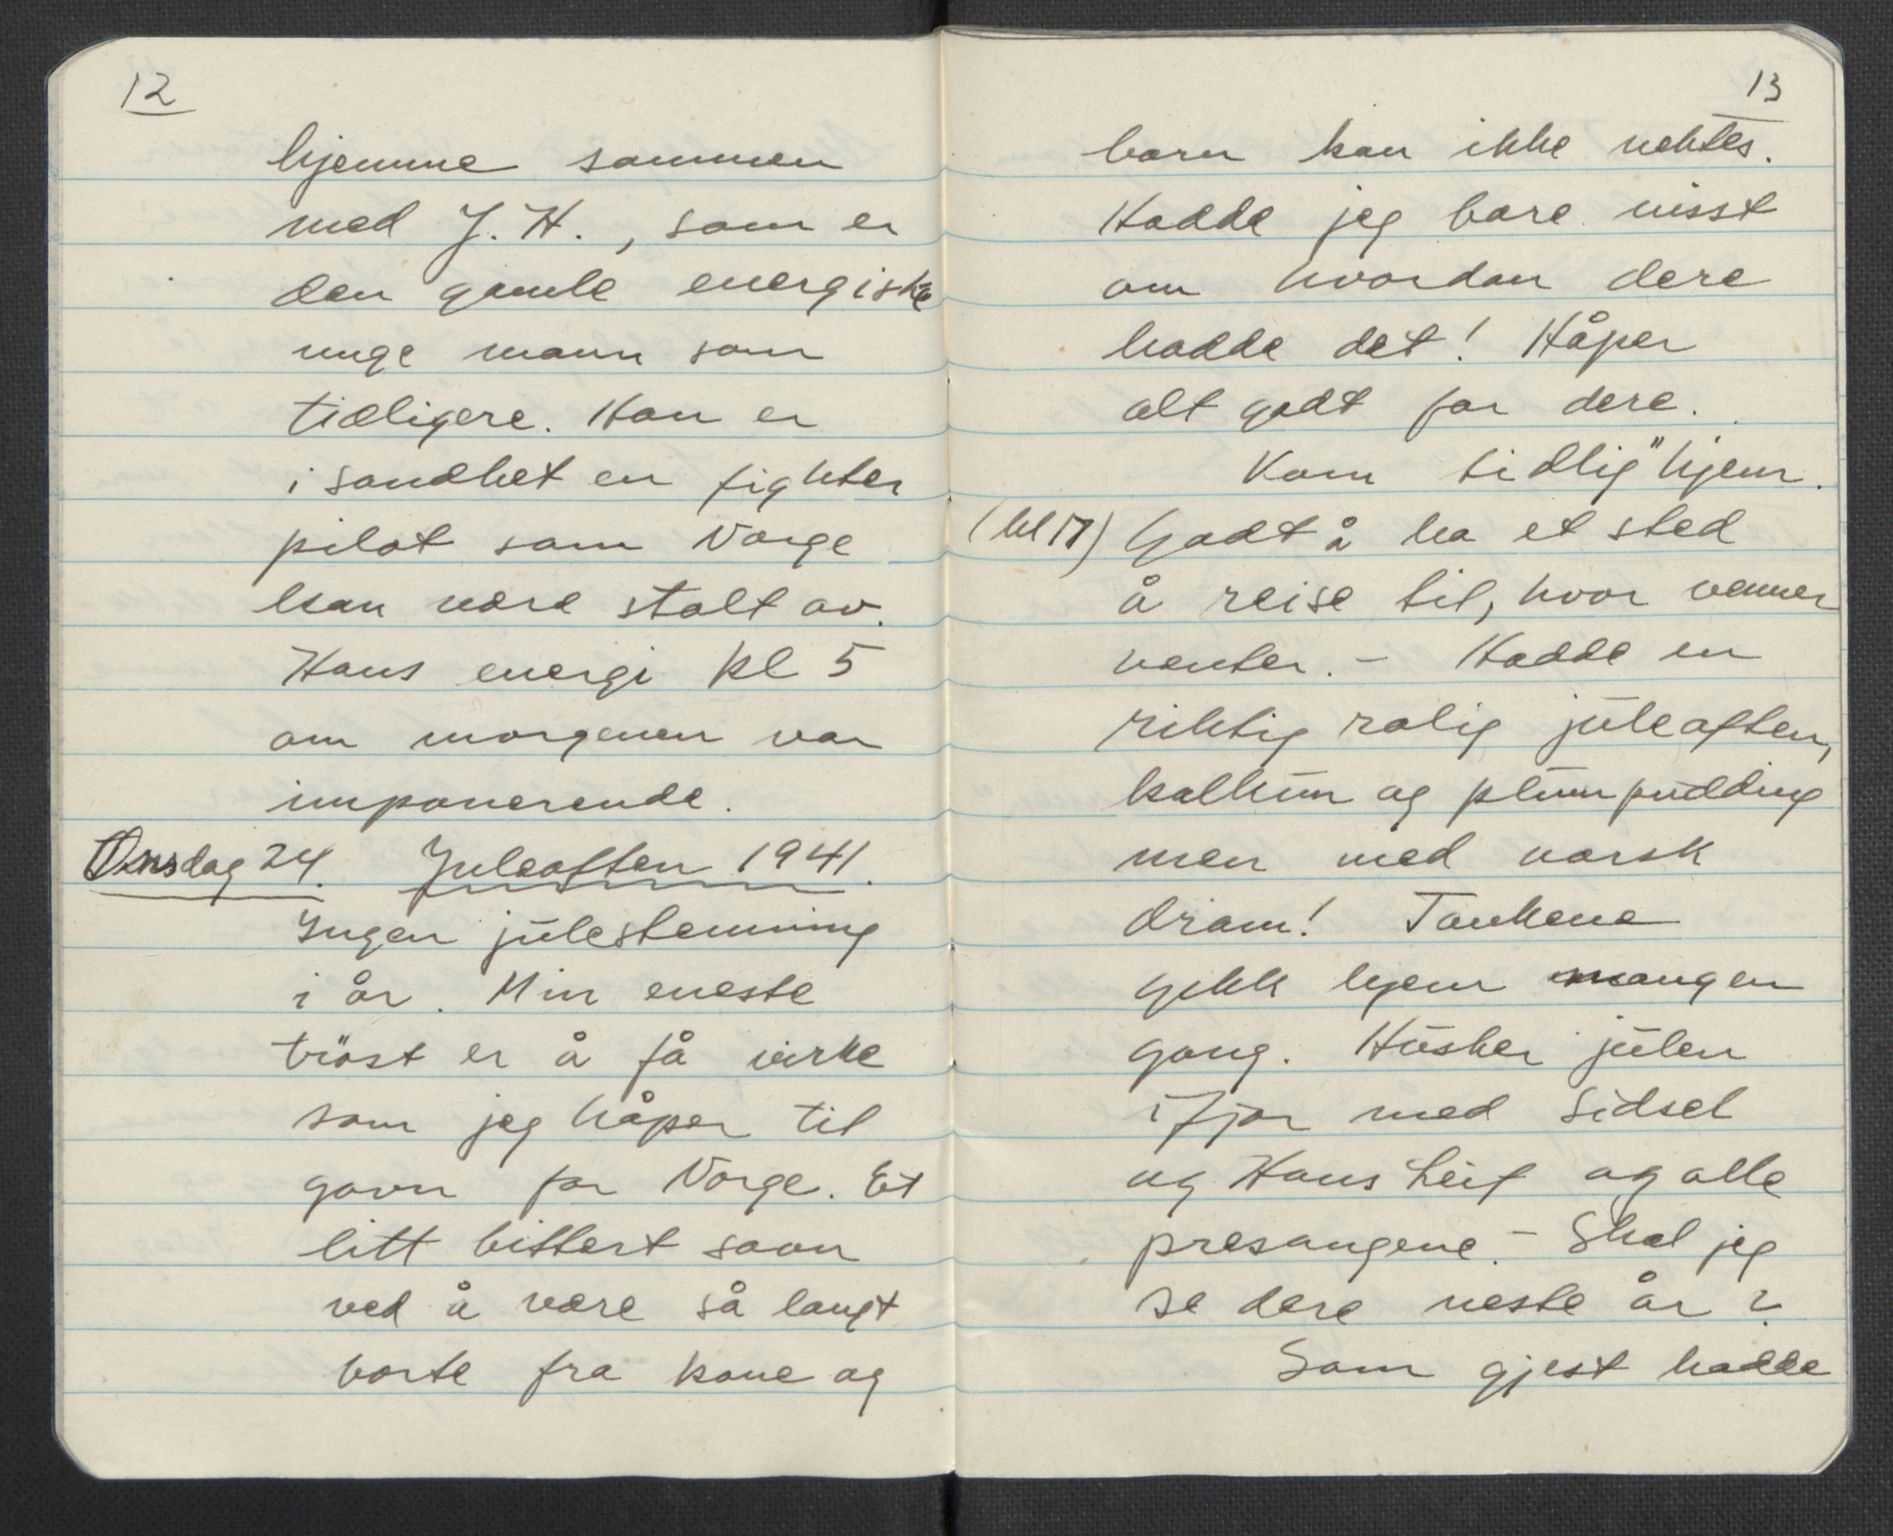 12
hjemme sammen
med J. H., som er
den gamle energiske
unge mann som
tidligere. Han er
i sandhet en fighter
pilot som Norge
kan være stolt av.
Hans energi kl 5
om morgenen var
imponerende.
Onsdag 24. Juleaften 1941.
Ingen julestemning
i år. Min eneste
tröst er å få virke
som jeg håper til
gavn for Norge. Et
litt bittert savn
ved å være så langt
borte fra kone og
13
barn kan ikke nektes.
Hadde jeg bare visst
om hvordan dere
hadde det! Håper
alt godt for dere.
Kom tidlig "hjem.
(kl 17) Godt å ha et sted
å reise til, hvor venner
venter. - Hadde en
riktig rolig juleaften,
kalkun og plumpudding
men med norsk
dram! Tankene
gikk hjem mangen
gang. Husker julen
ifjor med Sidsel
og Hans Leif og alle
presangene. - Skal jeg
se dere neste år?
Som gjest hadde